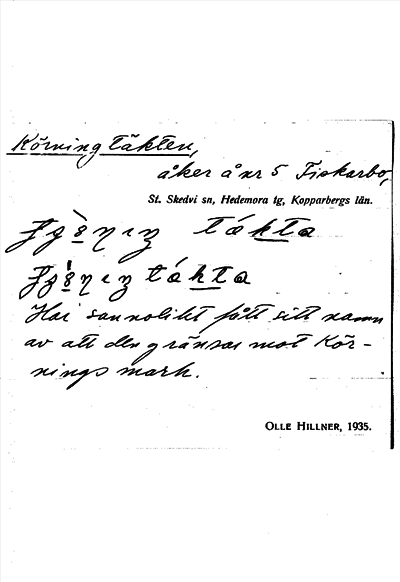 Körningtäkten,
åker å nr 5 Fiskarbo,
St. Skedvi sn, Hedemora tg, Kopparbergs län.
Har sannolikt fått sitt namn
av att den gränsar mot Kör-
nings mark.
OLLE HILLNER, 1935.